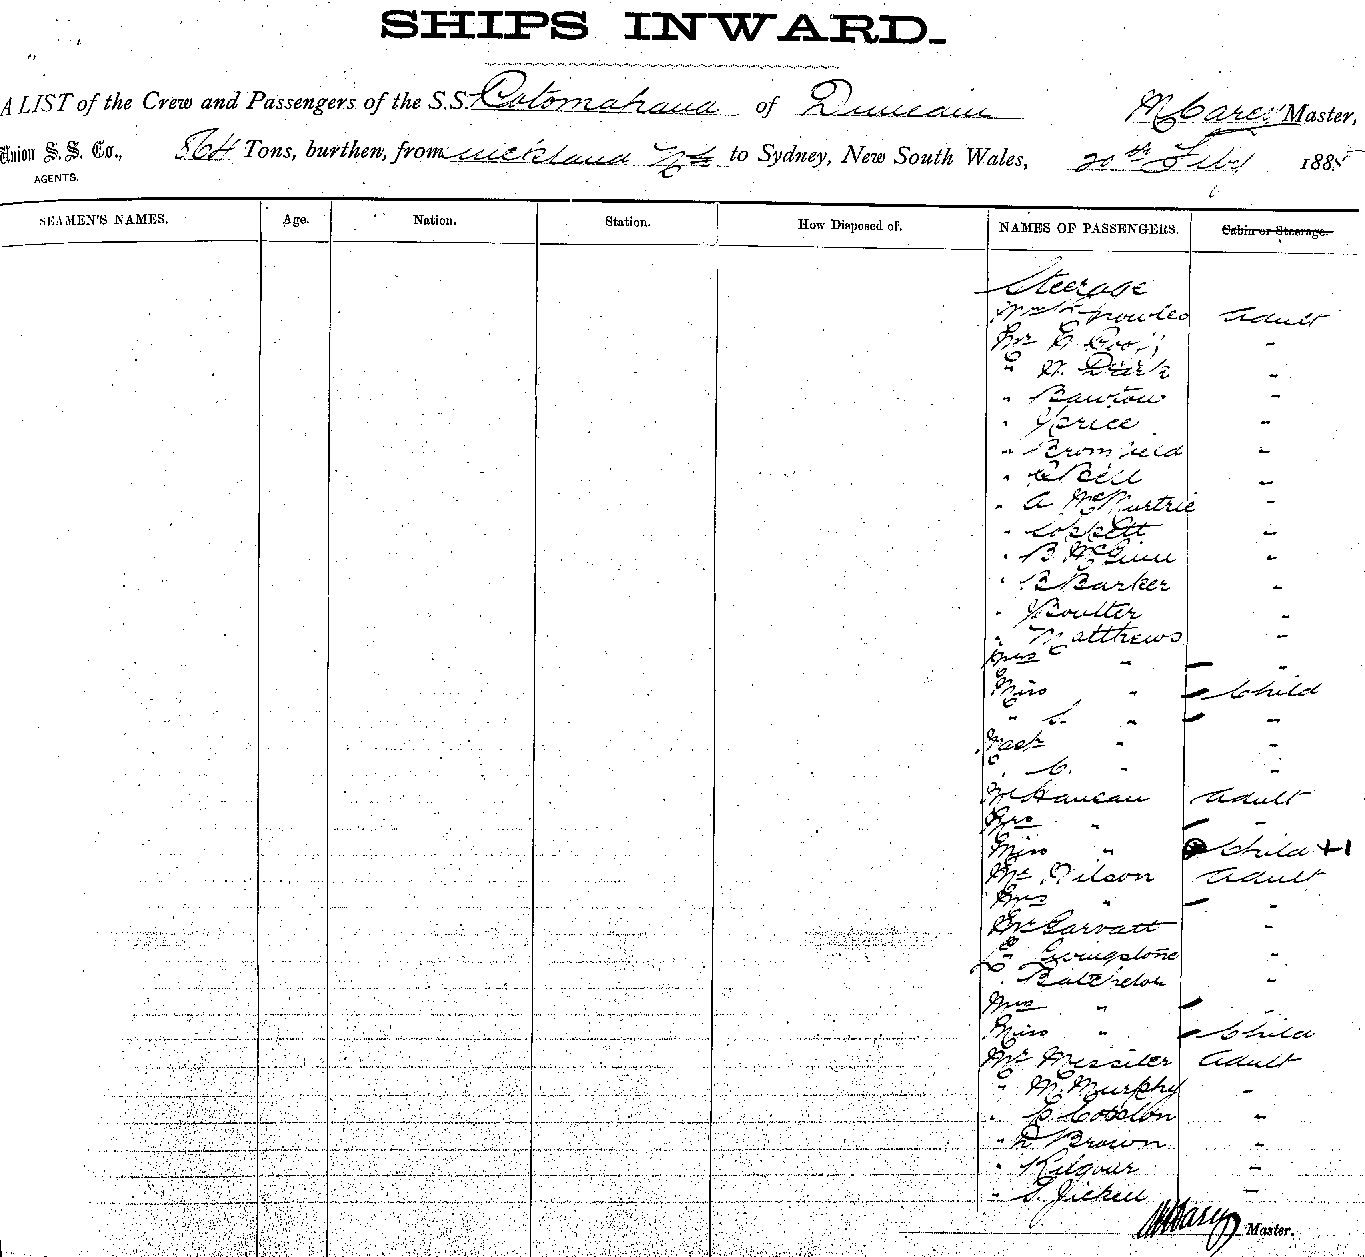 SHIPS INWARD.
A LIST of the Crew and Passengers of the S.S. Rotomahana of Dunedin M Carey Master,
Union S. S. Co., 864 Tons, burthen, from Auckland NZ to Sydney, New South Wales, 20th Feby 1885
AGENTS.
SEAMEN'S NAMES. Age. Nation. Station. How Disposed of. NAMES OF PASSENGERS. Cabin or Steerage.
Steerage
Mr Knowles Adult
Mr C "
" W. Dark "
" Bawton "
" Price "
" Bromfield "
" C Bell "
" A McMurtrie "
" Coppett "
" B McGinn "
" B Barker "
" Boulter "
" Matthews "
Mrs " "
Miss " Child
" " "
Mast " "
" C. " "
Mr Adult
Mrs " "
Miss " Child +1
Mr Wilson Adult
Mrs " "
Mr Garvatt "
" Livingstone "
" Batchelor "
Mrs " "
Miss " Child
Mr Messiter Adult
" M. Murphy "
" C "
" D Brown "
" Kilgour "
" S. "
M Carey Master.